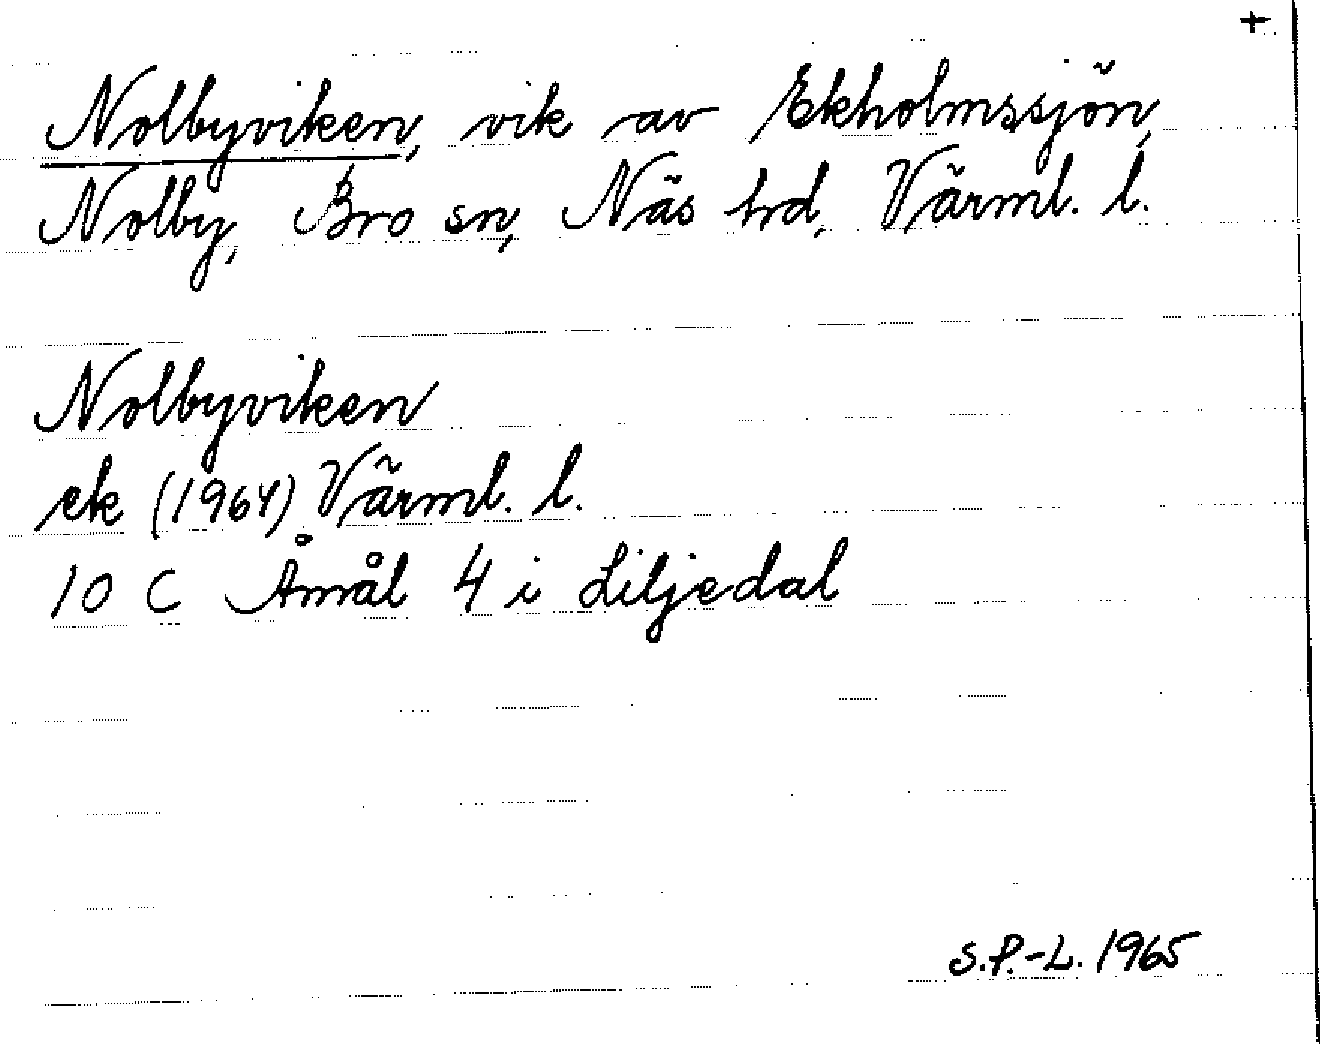 +
Nolbyviken, vik av Ekholmssjön,
Nolby, Bro sn, Näs hrd, Värml. l.
Nolbyviken
ek (1964) Värml. l.
10 C Åmål 4 i Liljedal
S.P.-L. 1965